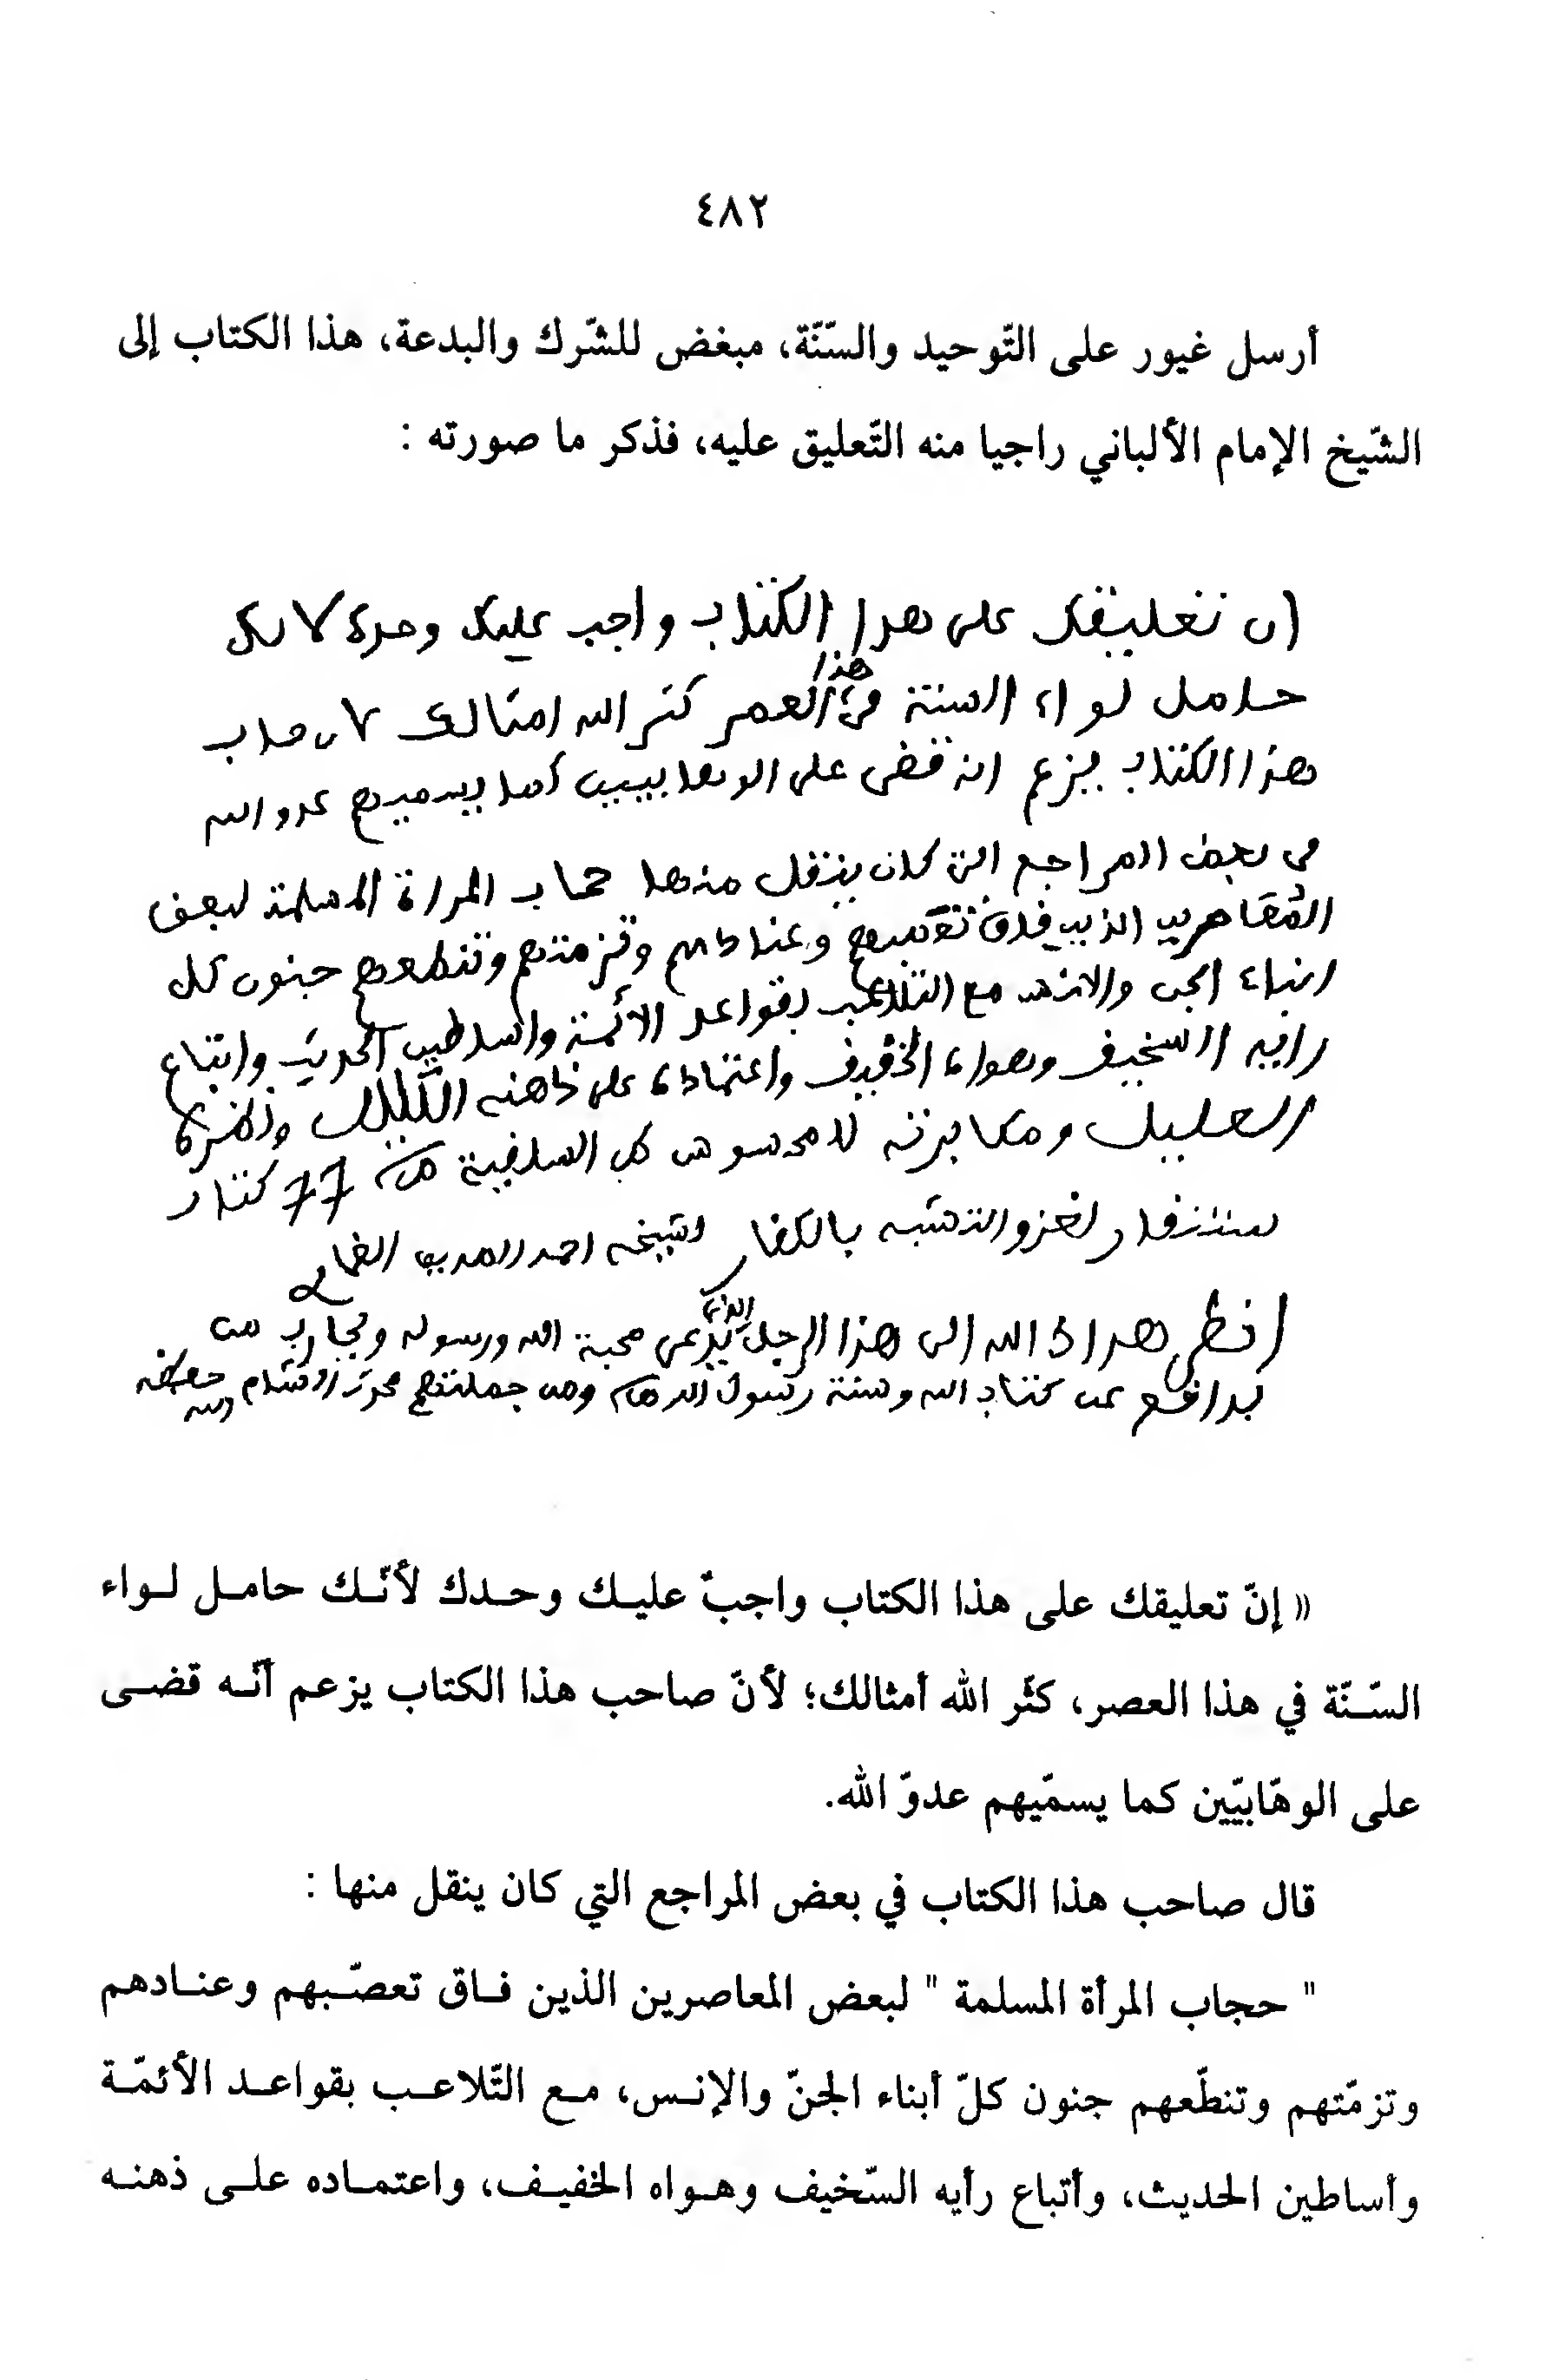 ٤٨٢
أرسل غيور على التّوحيد والسّنّة، مبغض للشّرك والبدعة، هذا الكتاب إلى
الشّيخ الإمام الألباني راجيا منه التّعليق عليه، فذكر ما صورته :
ان تعليقك على هذا الكتاب واجب عليك وحدك لانك
حامل لواء السنة في هذا العصر كثر الله امثالك لان صاحب
هذا الكتاب يزعم انه قضى على الوهابيين كما يسميهم عدو الله
في بعض المراجع التي كان ينقل منها حجاب المرأة المسلمة لبعض
المعاصرين الذين فاق تعصبهم وعنادهم وتزمتهم وتنطعهم جنون كل
ابناء الجن والانس مع التلاعب بقواعد الأئمة واساطين الحديث واتباع
رايه السخيف وهواه الخفيف واعتماده على ذهنه الكليل ونظره
العليل ومكابرته للمحسوس
من كتاب
لغزو التشبه بالكفار لشيخه احمد الصديق الغماري
انظر هداك الله الى هذا الرجل الذي يدعي محبة الله ورسوله ويحارب من
يدافع عن كتاب الله وسنة رسول الله ومن جملتهم محدث الشام حفظه
الله
« إنّ تعليقك على هذا الكتاب واجبٌ عليـك وحـدك لأنّـك حامـل لـواء
السّـنّة في هذا العصر، كثّر الله أمثالك؛ لأنّ صاحب هذا الكتاب يزعم أنّـه قضـى
على الوهّابيّين كما يسمّيهم عدوّ الله.
قال صاحب هذا الكتاب في بعض المراجع التي كان ينقل منها :
" حجاب المرأة المسلمة " لبعض المعاصرين الذين فـاق تعصّـبهم وعنـادهم
وتزمّتهم وتنطّعهم جنون كلّ أبناء الجنّ والإنـس، مـع التّلاعـب بقواعـد الأئمّـة
وأساطين الحديث، وأتباع رأيه السّخيف وهـواه الخفيـف، واعتمـاده علـى ذهنـه